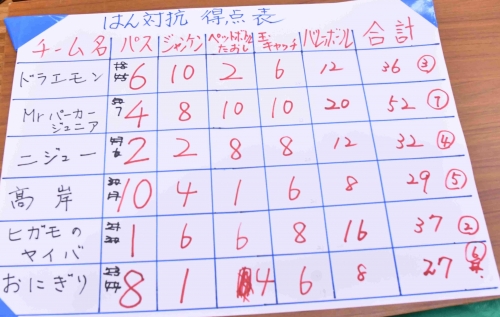 はん対抗 得点表
チーム名 パス ジャンケン ペットボトルたおし 玉キャッチ バレーボール 合計
ドラエモン 6 10 2 6 12 36 ③
Mrパーカージュニア 4 8 10 10 20 52 ①
ニジュー 2 2 8 8 12 32 ④
高岸 10 4 1 6 8 29 ⑤
ヒガモのヤイバ 1 6 6 8 16 37 ②
おにぎり 8 1 4 6 8 27 ⑥